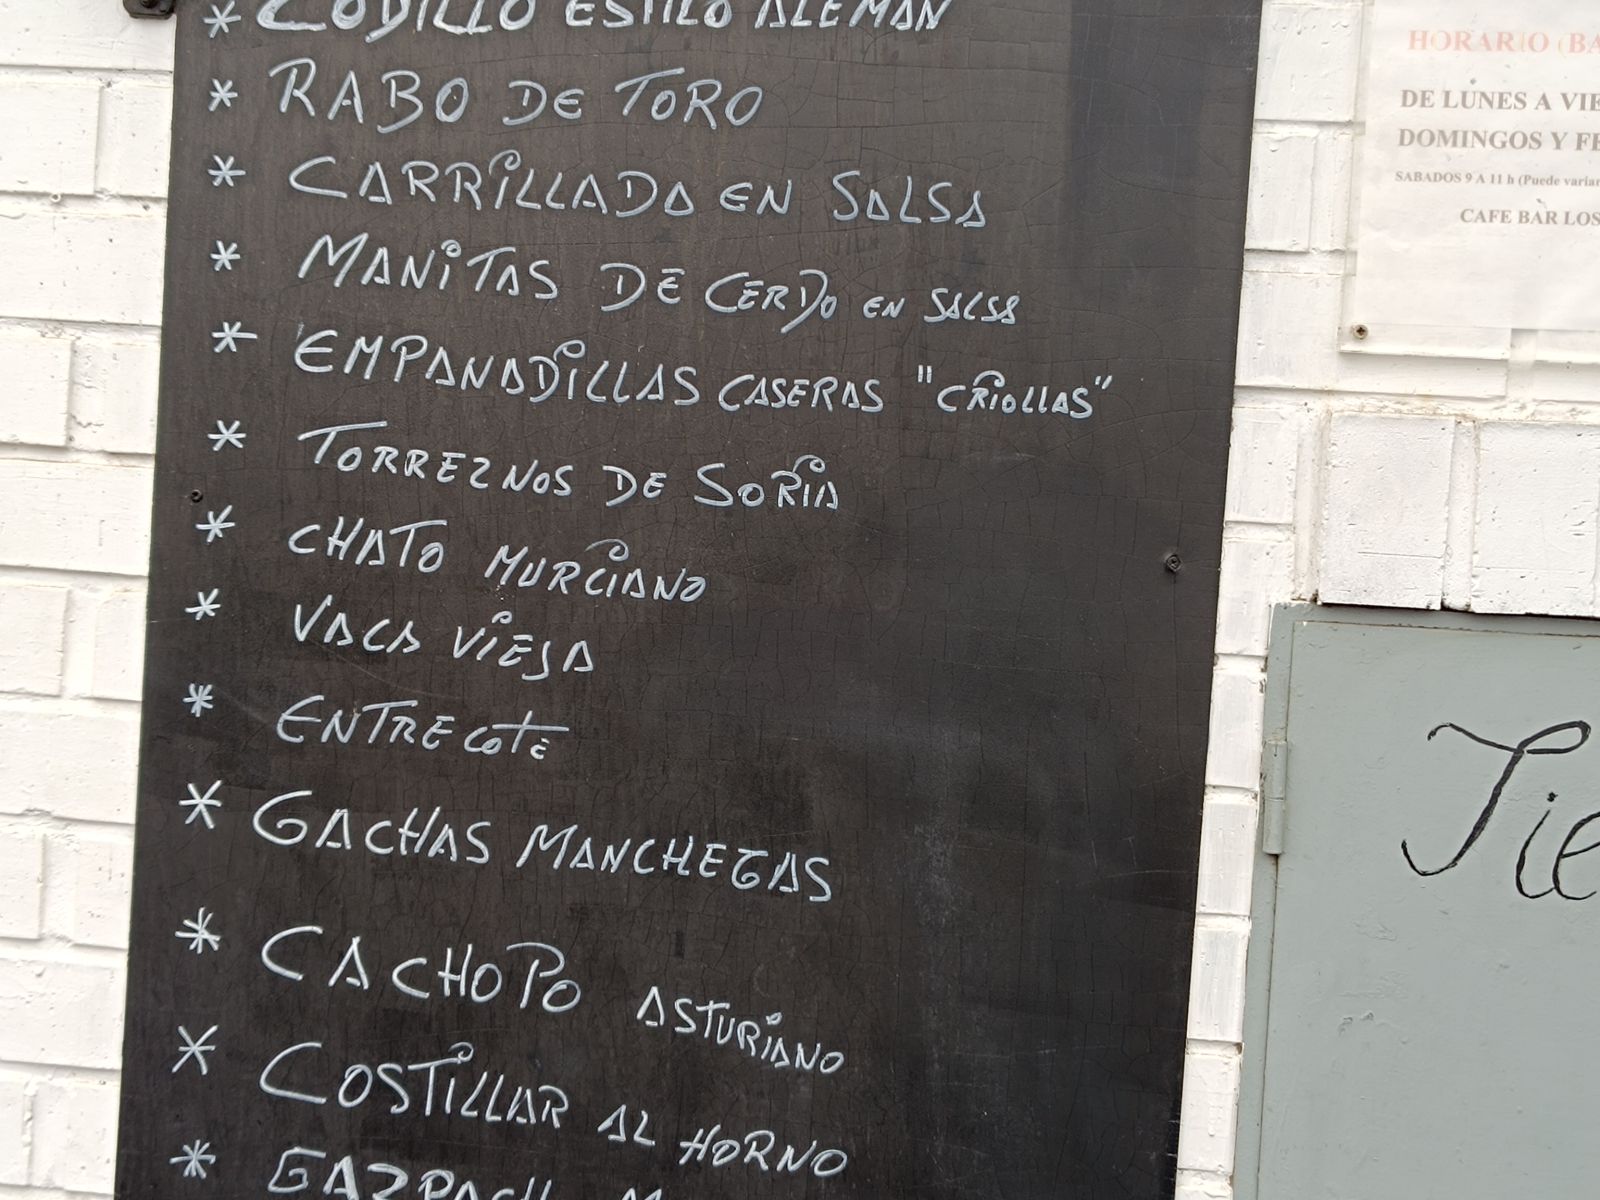 * CODILLO ESTILO ALEMAN
* RABO DE TORO
* CARRILLADA EN SALSA
* MANITAS DE CERDO EN SALSA
* EMPANADILLAS CASERAS "CRIOLLAS"
* TORREZNOS DE SORIA
* CHATO MURCIANO
* VACA VIEJA
* ENTRECOTE
* GACHAS MANCHEGAS
* CACHOPO ASTURIANO
* COSTILLAR AL HORNO
*
HORARIO (BA
DE LUNES A VIE
DOMINGOS Y FE
SABADOS 9 A 11 h (Puede variar
CAFE BAR LOS
Tie